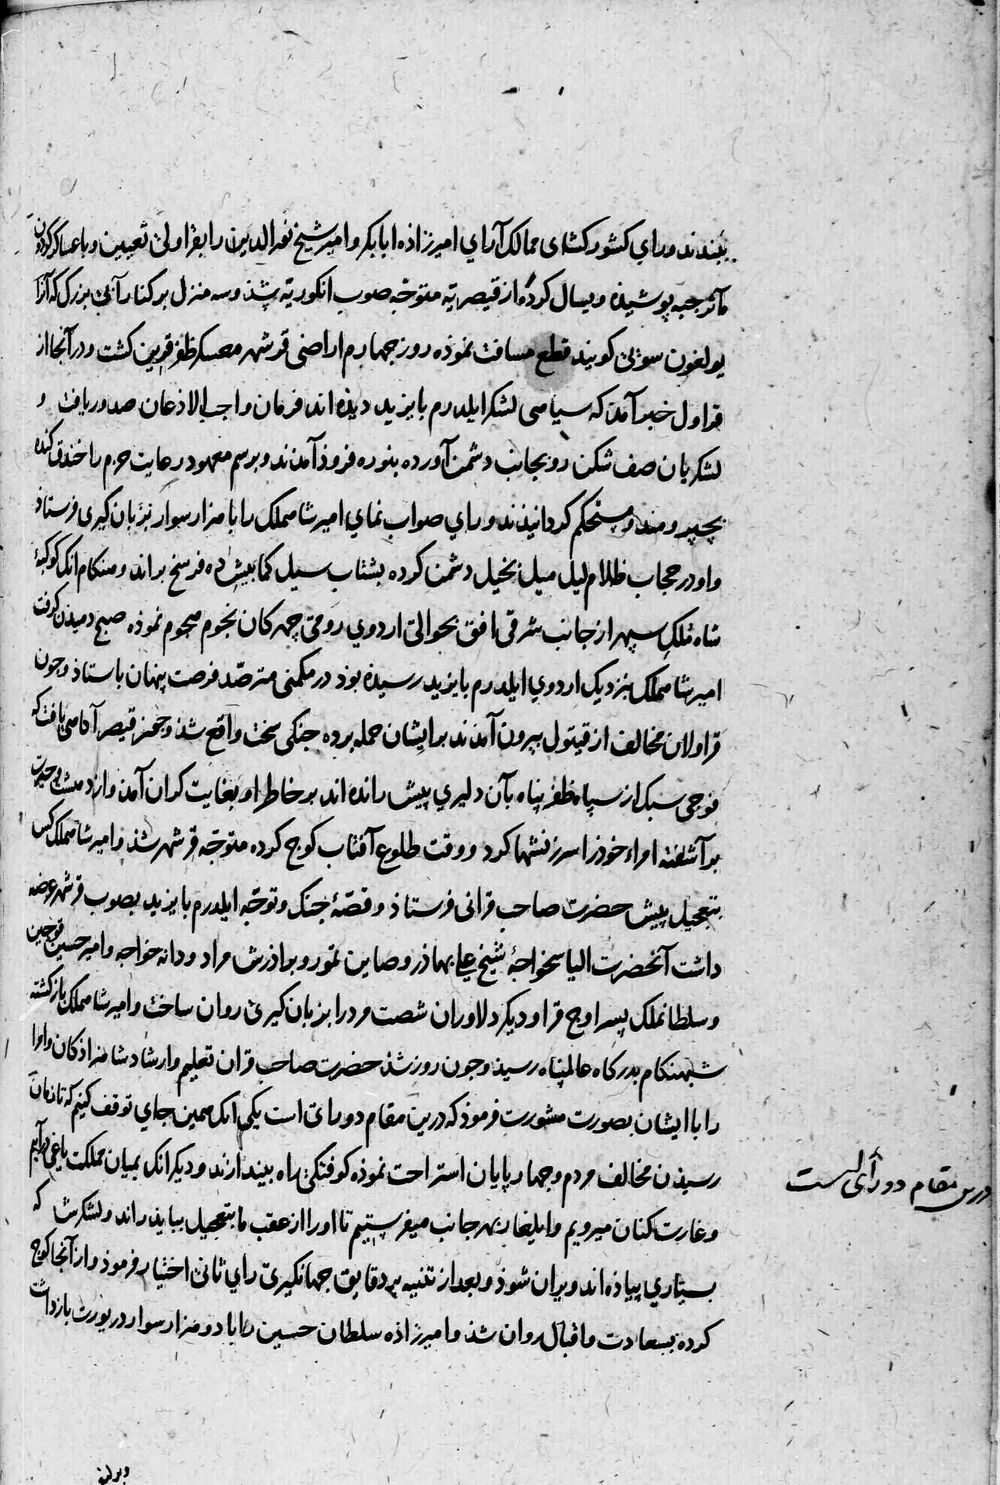 ببندند و رای کشور کشای ممالک آرای امیرزاده ابابکر و امیر شیخ نور الدین را بقراولی تعیین و با عساکر گردون
مآثر جیبه پوشیذه و یسال کرده از قیصریّه متوجّه صوب انکوریّه شذ و سه منزل بر کنار آبی بزرک که آنرا
یولغون سوئی کویند قطع مسافت نموذه روز چهارم اراضی قرشهر معسکر ظفر قرین کشت و در آنجا از
قراول خبر آمذ که سیاهی لشکر ایلدرم بایزید دیذه اند فرمان واجب الاذعان صدور یافت و
لشکریان صف شکن رو بجانب دشمن آورده بنوره فروذ آمذند و برسم معهود رعایت حزم را خندق کنده
بچپر و مندو مستحکم کردانیذند و رای صواب نمای امیر شاهملک را با هزار سوار بزبان کیری فرستاذ
و او در حجاب ظلام لیل میل بخیل دشمن کرده بشتاب سیل کمابیش ده فرسخ براند و هنکام انک کوکبهٔ
شاه فلک سپهر از جانب شرقی افق بحوالی اردوی رومی چهرکان نجوم هجوم نموذه صبح دمیذن کرفت
امیر شاهملک بنزدیک اردوی ایلدرم بایزید رسیذه بوذ در مکمنی مترصّد فرصت پنهان باستاذ و چون
قراولان مخالف از قیتول بیرون آمذند بر ایشان حمله برده جنکی سخت واقع شذ و چون قیصر آکاهی یافت که
فوجی سبک از سپاه ظفر پناه بآن دلیری پیش رانده اند بر خاطر او بغایت کران آمذ و از دهشت و حیرت
بر آشفته امراء خوذ را سرزنشها کرد و وقت طلوع آفتاب کوچ کرده متوجّه قرشهر شذ و امیر شاهملک کس
بتعجیل پیش حضرت صاحب قرانی فرستاذ و قصّهٔ جنک و توجّه ایلدرم بایزید بصوب قرشهر عرضه
داشت آنحضرت الیاسخواجهٔ شیخ علی بهاذر و صاین تمور و براذرش مراد و دانه خواجه و امیر حسین قوجین
و سلطانملک پسر اوج قرا و دیکر دلاوران شصت مرد را بزبان کیری روان ساخت و امیر شاهملک بازکشته
شبهنکام بدرکاه عالمپناه رسیذ و چون روز شذ حضرت صاحب قران تعلیم و ارشاد شاهزاذکان و امرا
را با ایشان بصورت مشورت فرموذ که درین مقام دو رای است یکی انک همین جای توقف کنیم که تا زمان
رسیذن مخالف مردم و چهارپایان استراحت نموذه کوفتکی راه بیندازند و دیکر انک بمیان مملکت یاغی درآییم
و غارت کنان میرویم و ایلغار بهر جانب میفرستیم تا او را از عقب ما بتعجیل ببایذ راند و لشکرش که
بسیاری پیاذه اند ویران شوذ و بعد از تنبیه بر دقایق جهانکیری رای ثانی اختیار فرموذ و از آنجا کوچ
کرده بسعادت و اقبال روان شذ و امیرزاذه سلطان حسین را با دو هزار سوار در یورت بازداشت
درین مقام دو رأی است